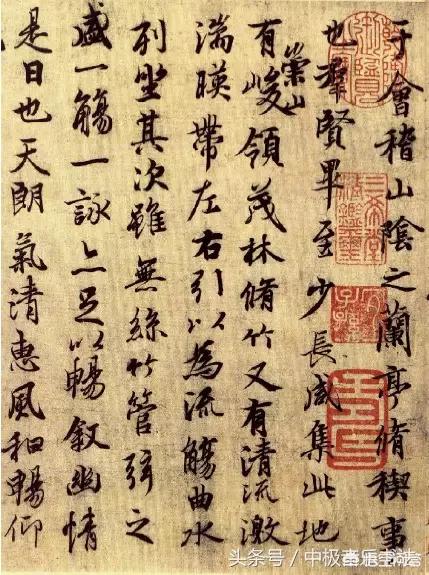 于會稽山陰之蘭亭脩稧事
也羣賢畢至少長咸集此地
崇山
有峻領茂林脩竹又有清流激
湍暎帶左右引以為流觴曲水
列坐其次雖無絲竹管弦之
盛一觴一詠亦足以暢敘幽情
是日也天朗氣清惠風和暢仰
三希堂精鑑璽
宜子孫
头条号 / 中极